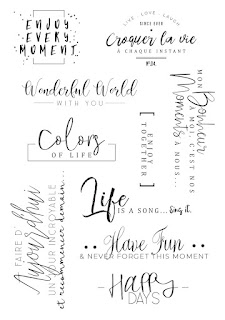 ENJOY
EVERY
MOMENT
LIVE - LOVE - LAUGH
SINCE EVER
Croquer la vie
À CHAQUE INSTANT
N°24
Wonderful World
WITH YOU
MON
Bonheur
À MOI, C'EST NOS
Moments
À NOUS...
Colors
OF LIFE
ENJOY
[ TOGETHER ]
FAIRE D'
Aujourd'hui
UN JOUR INCROYABLE
et recommencer demain...
Life
IS A SONG... Sing it.
Have Fun
& NEVER FORGET THIS MOMENT
Happy
DAYS